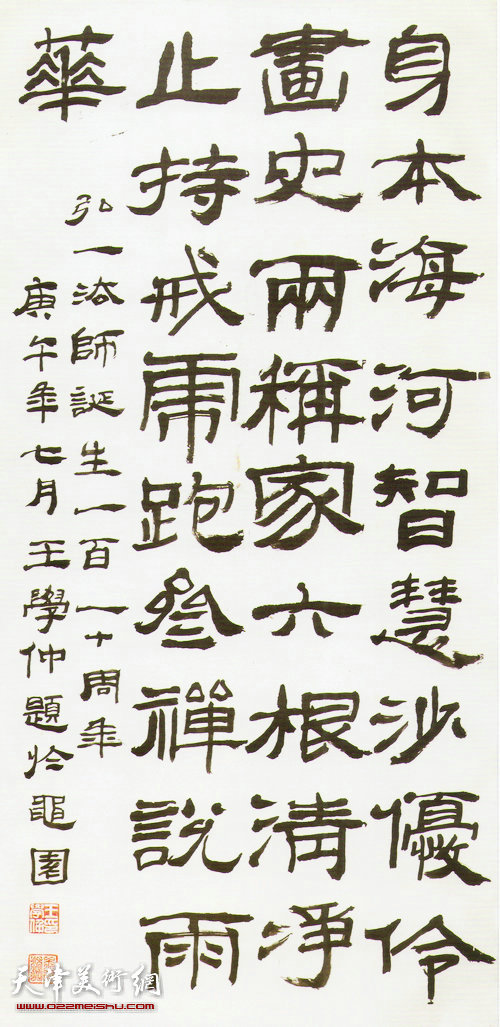 身本海河智慧沙優伶
畫史兩稱家六根清淨
止持戒虎跑參禪說雨
華
弘一法師誕生一百一十周年
庚午年七月王學仲題於黽園
天津美術網
www.022meishu.com